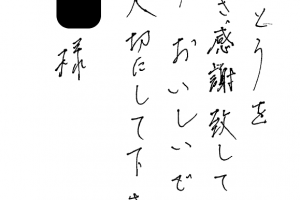 とうを
ぎ感謝致して
おいしいで
大切にして下さ
様